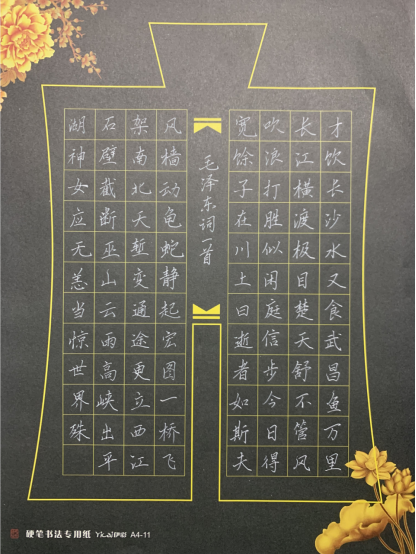 才饮长沙水又食武昌鱼万里
长江横渡极目楚天舒不管风
吹浪打胜似闲庭信步今日得
宽馀子在川上曰逝者如斯夫
毛泽东词一首
风樯动龟蛇静起宏图一桥飞
架南北天堑变通途更立西江
石壁截断巫山云雨高峡出平
湖神女应无恙当惊世界殊
硬笔书法专用纸 A4-11